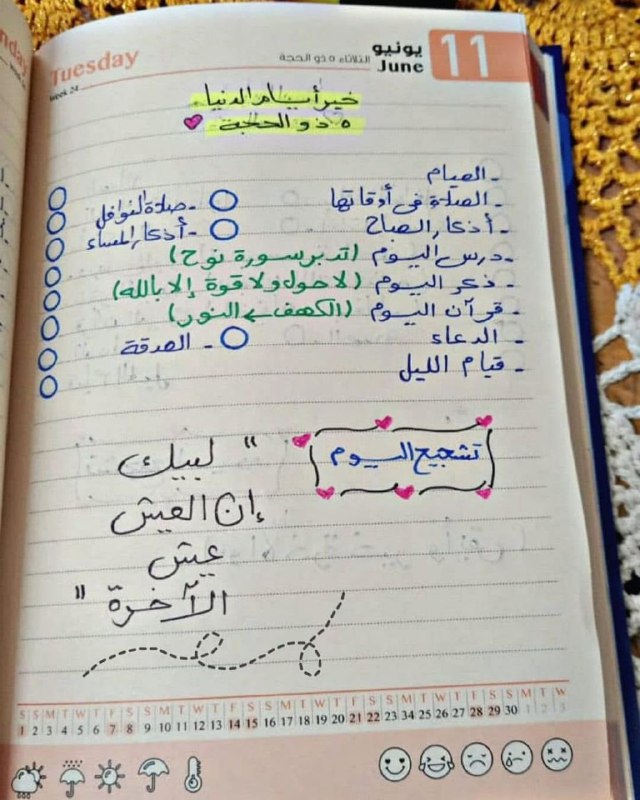 Tuesday
week 24
الثلاثاء ٥ ذو الحجة
يونيو
June
11
خير أيام الدنيا
٥ ذو الحجة
- الصيام
- الصلاة في أوقاتها
- صلاة النوافل
- أذكار الصباح
- أذكار المساء
- درس اليوم (تدبر سورة نوح)
- ذكر اليوم (لا حول ولا قوة إلا بالله)
- قرآن اليوم (الكهف ← النور)
- الدعاء
- الصدقة
- قيام الليل
تشجيع اليوم
" لبيك
إن العيش
عيش
الآخرة "
S S M T W T F S S M T W T F S S M T W T F S S M T W T F S S M T W
1 2 3 4 5 6 7 8 9 10 11 12 13 14 15 16 17 18 19 20 21 22 23 34 25 26 27 28 29 30 1 2 3